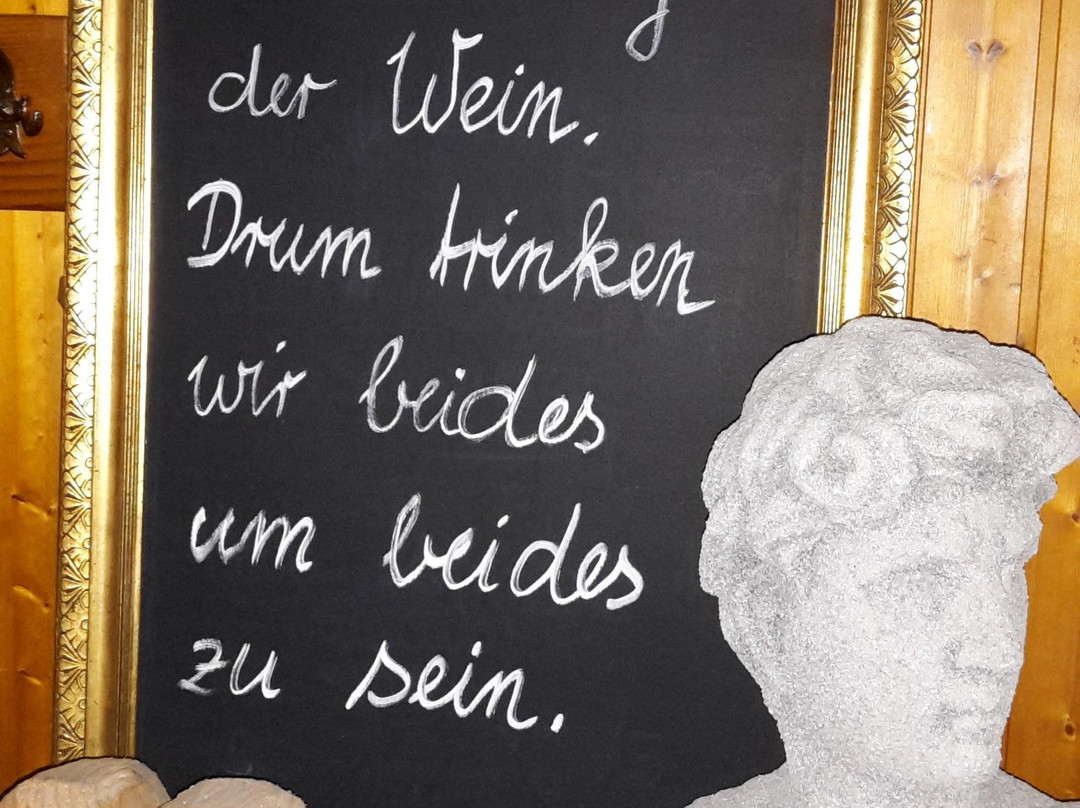 der Wein.
Drum trinken
wir beides
um beides
zu sein.